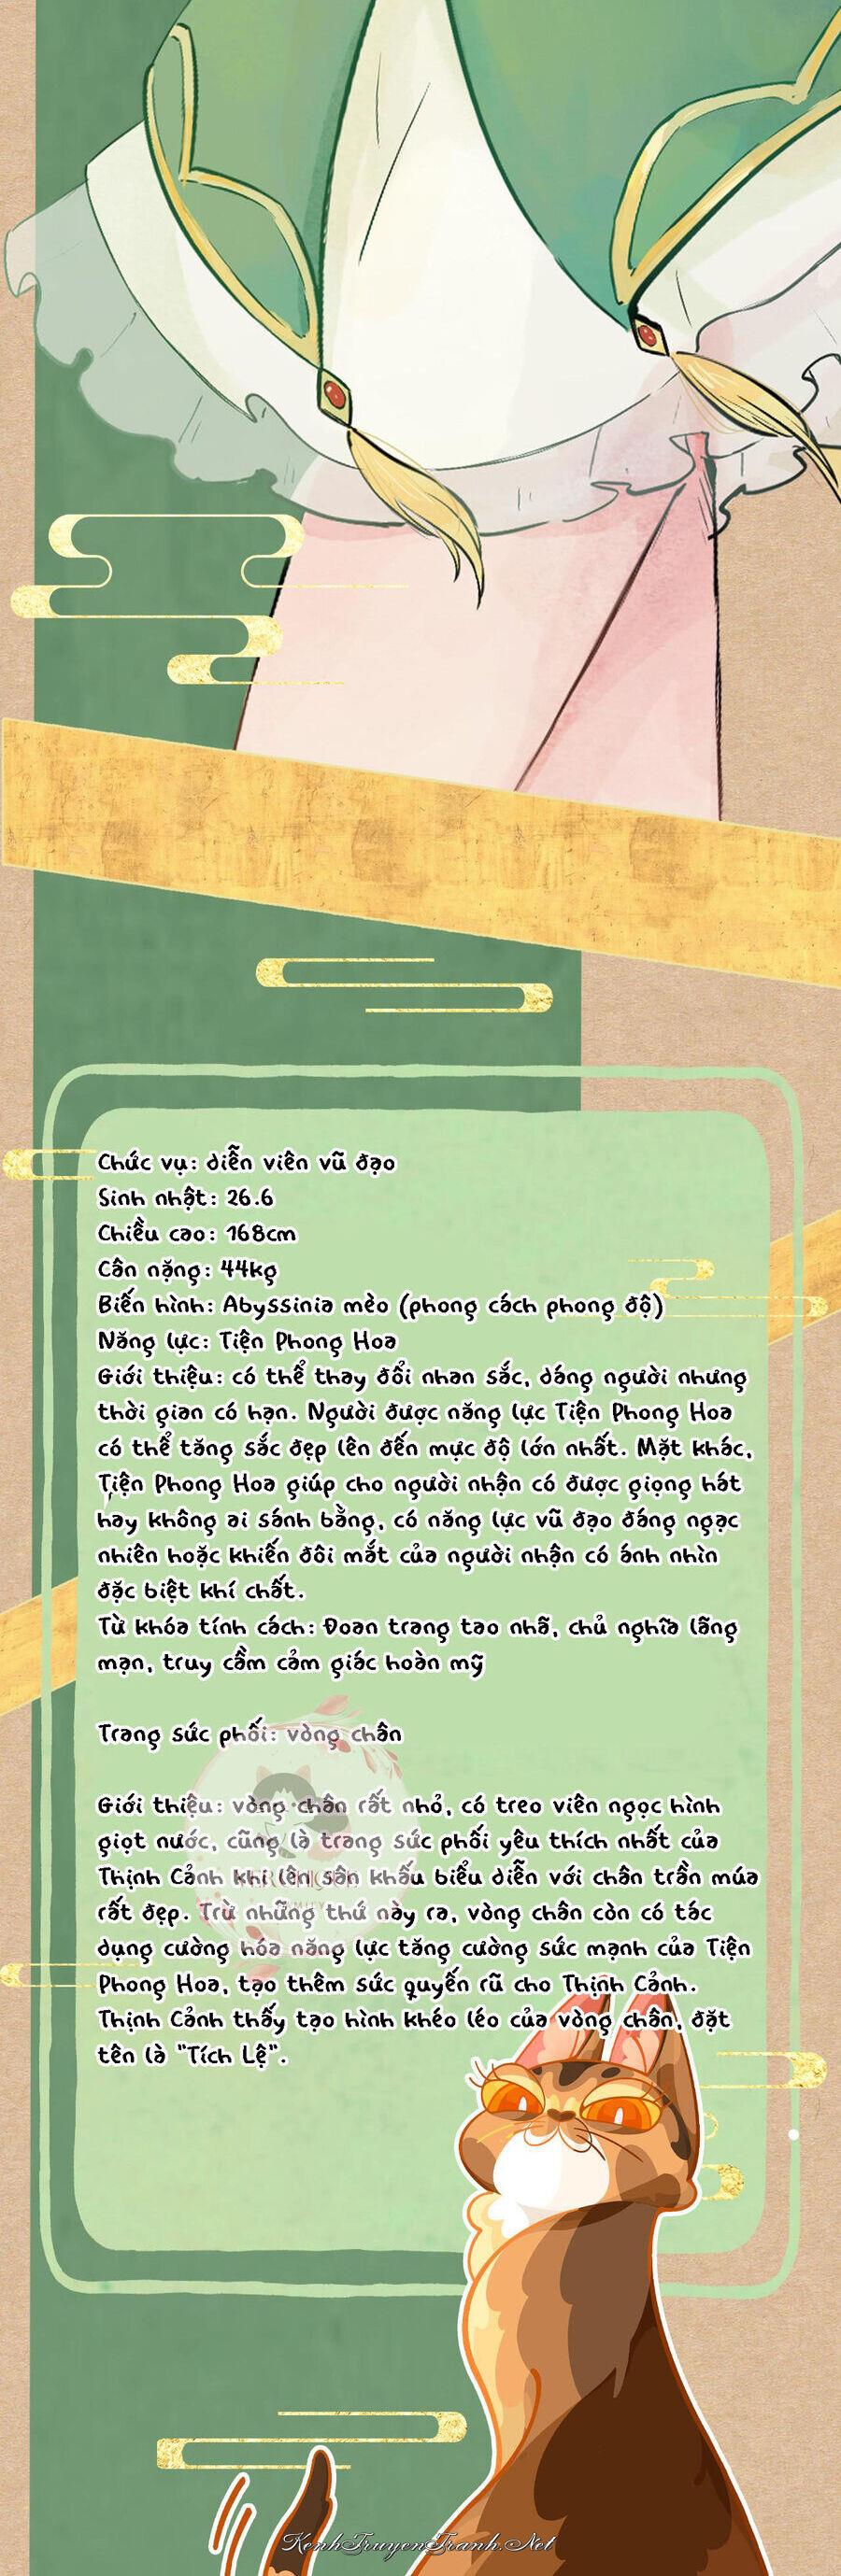 Chức vụ: diễn viên vũ đạo
Sinh nhật: 26.6
Chiều cao: 168cm
Cân nặng: 44kg
Biến hình: Abyssinia mèo (phong cách phong độ)
Năng lực: Tiện Phong Hoa
Giới thiệu: có thể thay đổi nhan sắc, dáng người nhưng
thời gian có hạn. Người được năng lực Tiện Phong Hoa
có thể tăng sắc đẹp lên đến mực độ lớn nhất. Mặt khác,
Tiện Phong Hoa giúp cho người nhận có được giọng hát
hay không ai sánh bằng, có năng lực vũ đạo đáng ngạc
nhiên hoặc khiến đôi mắt của người nhận có ánh nhìn
đặc biệt khí chất.
Từ khóa tính cách: Đoan trang tao nhã, chủ nghĩa lãng
mạn, truy cầm cảm giác hoàn mỹ
Trang sức phối: vòng chân
Giới thiệu: vòng chân rất nhỏ, có treo viên ngọc hình
giọt nước, cũng là trang sức phối yêu thích nhất của
Thịnh Cảnh khi lên sân khấu biểu diễn với chân trần múa
rất đẹp. Trừ những thứ này ra, vòng chân còn có tác
dụng cường hóa năng lực tăng cường sức mạnh của Tiện
Phong Hoa, tạo thêm sức quyến rũ cho Thịnh Cảnh.
Thịnh Cảnh thấy tạo hình khéo léo của vòng chân, đặt
tên là "Tích Lệ".
KenhTruyenTranh.Net